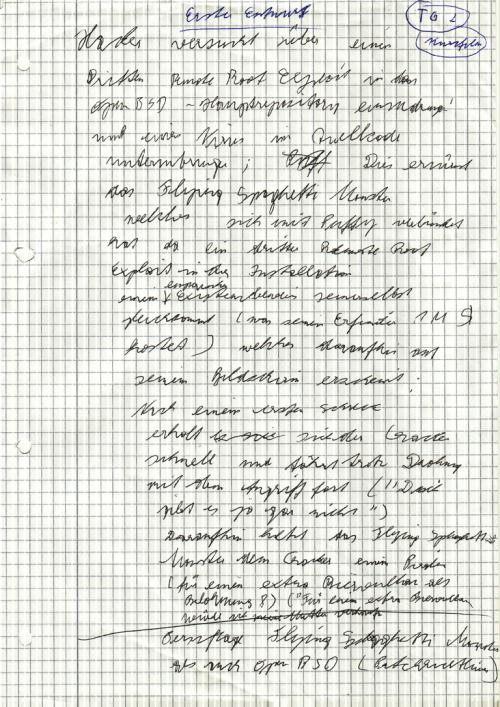 Erster Entwurf
TG 2
Hacker versucht über einen
Dritten Remote Root Exploit in das
Open BSD - Hauptrepository einzudringen
und einen Virus im Quellcode
unterzubringen; Dies erzürnt
das Flying Spaghetti Monster
welches sich mit Puffy verbündet
hat da ein dritter Remote Root
Exploit in der Installation
einem
gleichkommt (was seinen Erfinder 1 M $
kostet) welches daraufhin auf
seinem Bildschirm erscheint;
Nach einem ersten Schreck
erholt sich der Cracker
schnell und fährt trotz Drohung
mit dem Angriff fort ("Dich
gibt es ja gar nicht")
Daraufhin hetzt das Flying Spaghetti
Monster dem Cracker einen Piraten
(für einen extra Biervulkan als
Belohnung 8) ("Für einen extra Biervulkan
Flying Spaghetti Monster
Open BSD